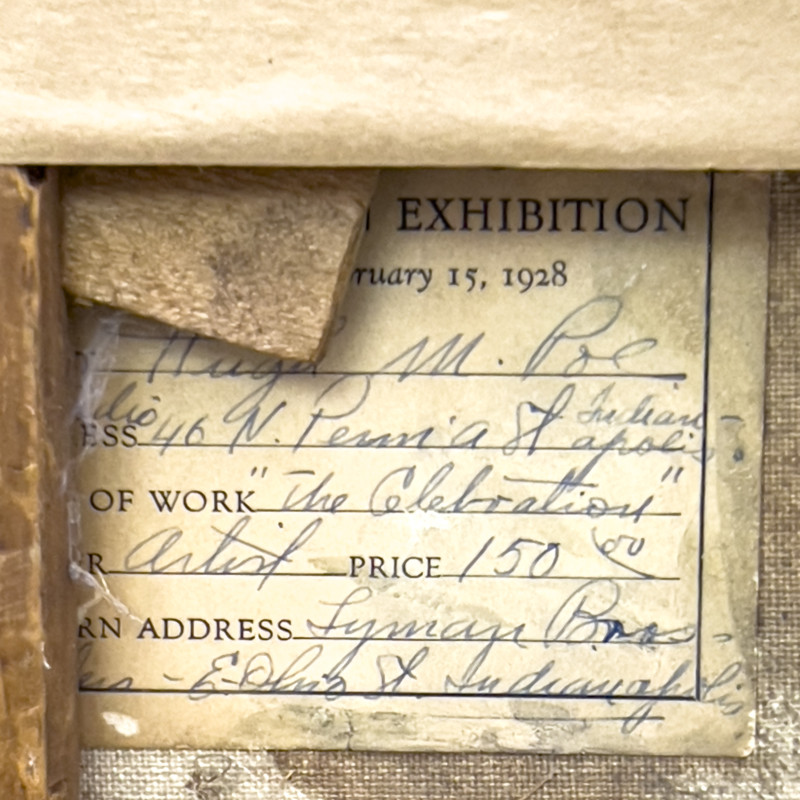 EXHIBITION
ruary 15, 1928
Hugh M. Poe
ESS dio 46 N. Penn'a St Indian-apolis.
OF WORK "The Clebration"
R Artist PRICE 150 00
RN ADDRESS Lyman Bros-
E. Ohio St. Indianapolis